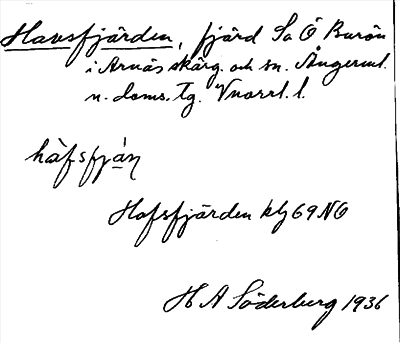 Havsfjärden, fjärd Sa Ö Burön
i Arnäs skärg. och sn. Ångerml.
n. doms. Tg. Vnorrl. l.
hàfsfjạ́ṇ
Hafsfjärden kbl 69 NO
H A Söderberg 1936